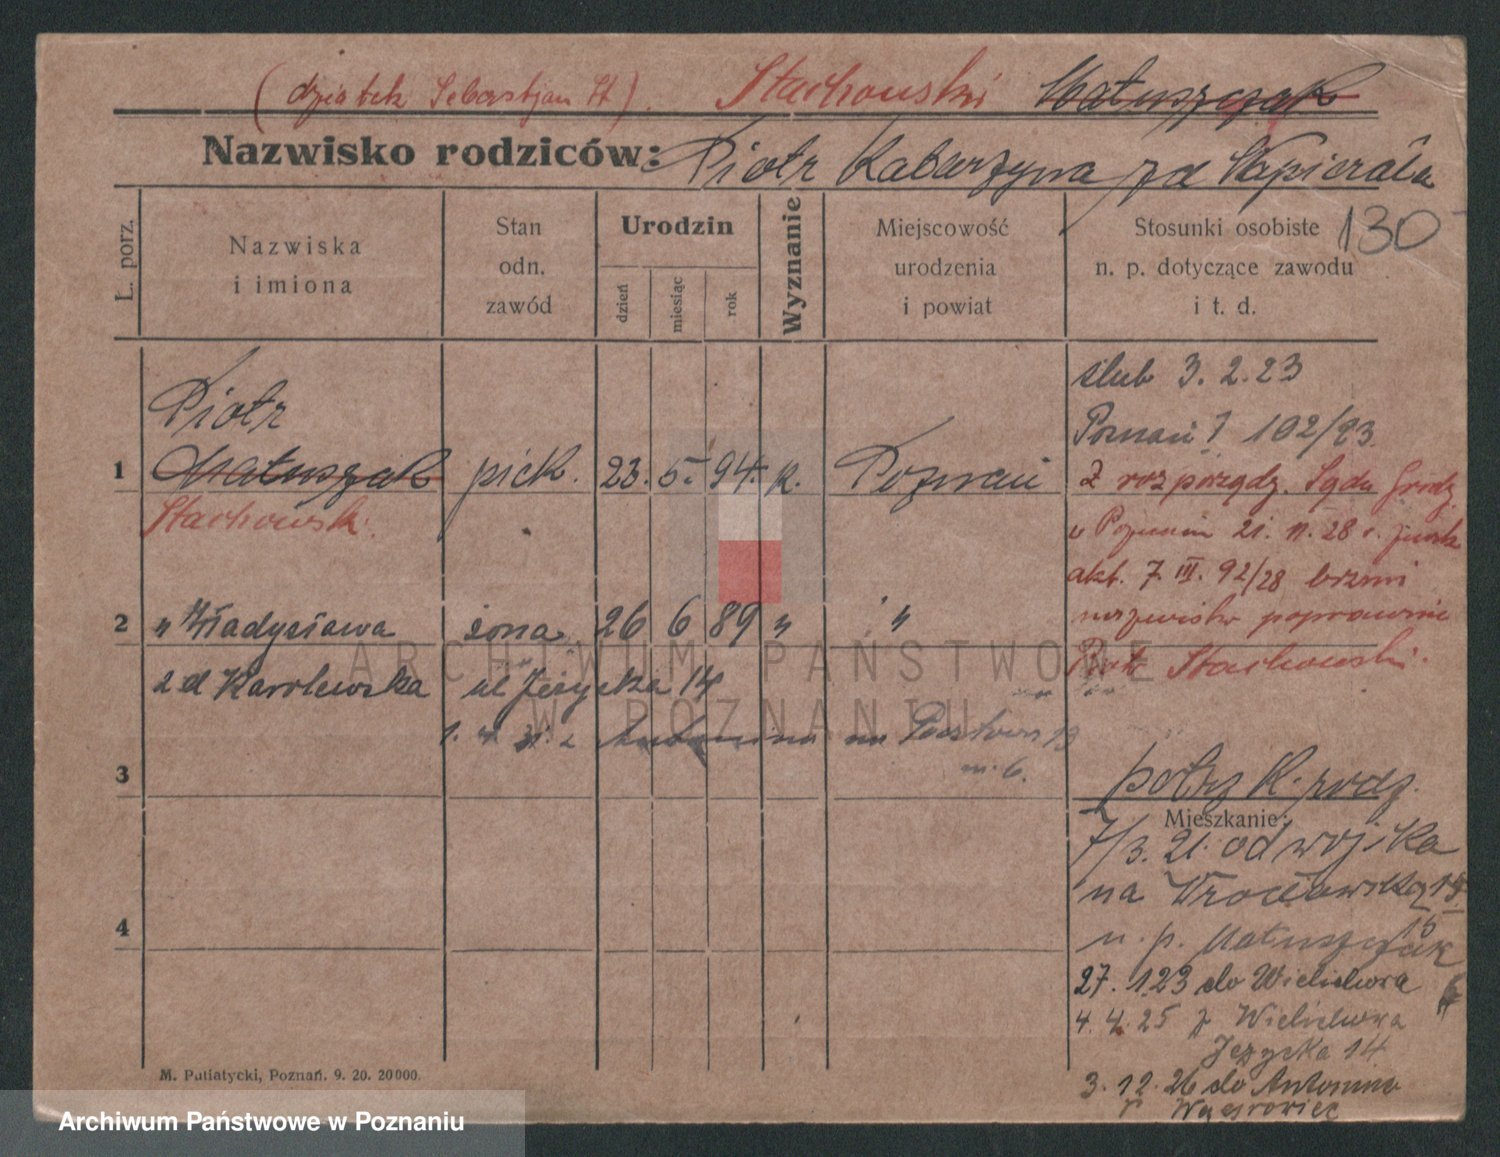 (dziadek Sebastjan St). Stachowski Matuszczak
Nazwisko rodziców: Piotr Katarzyna zd Napierała
130
L. porz.
Nazwiska i imiona
Stan odn. zawód
Urodzin
dzień
miesiąc
rok
Wyznanie
Miejscowość urodzenia i powiat
Stosunki osobiste n. p. dotyczące zawodu i t. d.
1 Piotr Matuszak piek. 23. 5. 94. k. Poznań
Stachowski
ślub 3. 2. 23
Poznań I 102/23
Z rozporządz. Sądu Grodz.
w Poznaniu 21. 11. 28 r.
akt. 7. III. 92/28 brzmi
nazwisko poprawnie
Piotr Stachowski.
2 " Władysława żona 26 6 89 " "
zd Karolewska ul Jeżycka 14
1. 4. 31. z Antonina na
m. 6.
3
potrz K. rodz.
Mieszkanie:
7/3. 21. od wojska
na Wrocławską 15
u. p. Matuszczak
4
27. 1 23 do Wielichowa
4. 4. 25 z Wielichowa
Jeżycka 14
3. 12. 26 do Antonina
p. Wągrowiec
M. Putiatycki, Poznań. 9. 20. 20000.
ARCHIWUM PAŃSTWOWE
W POZNANIU
Archiwum Państwowe w Poznaniu